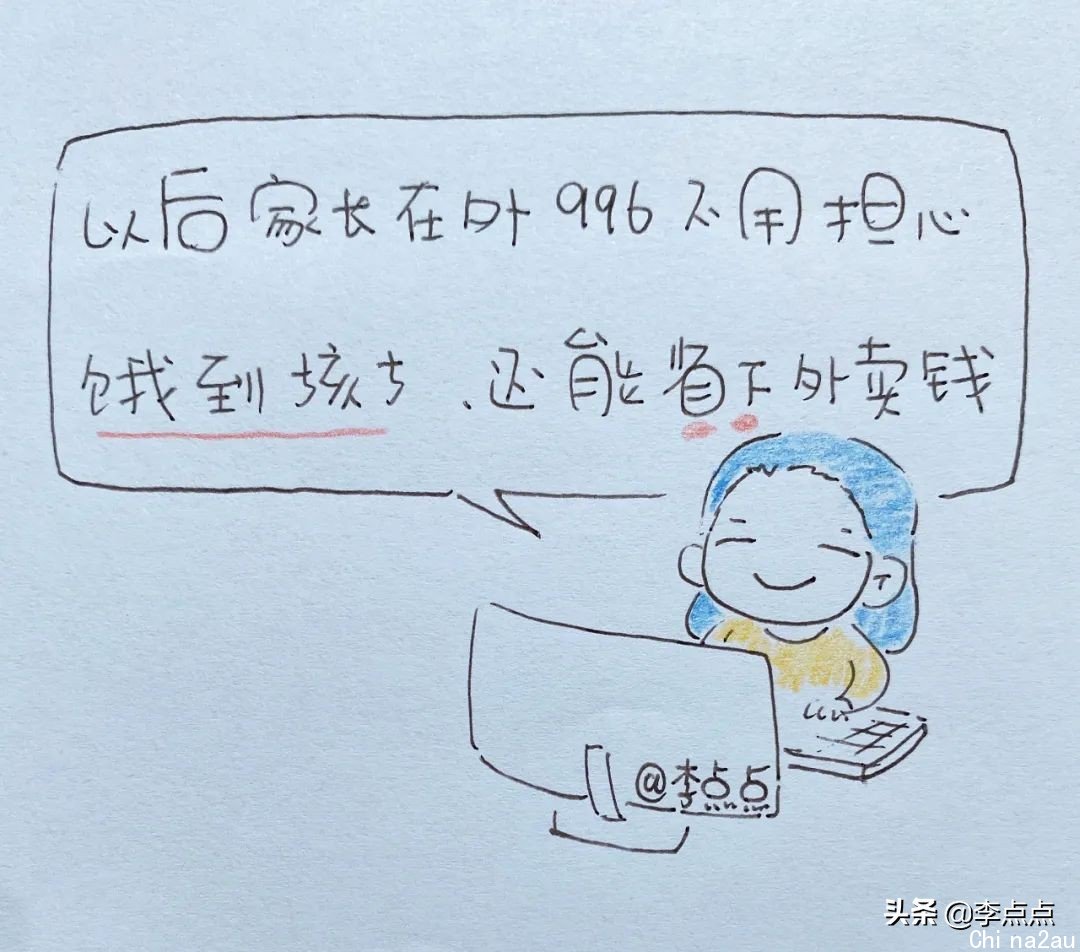 以后家长在外996不用担心
饿到孩子,还能省下外卖钱
@李点点
头条 @李点点
Chi na2au